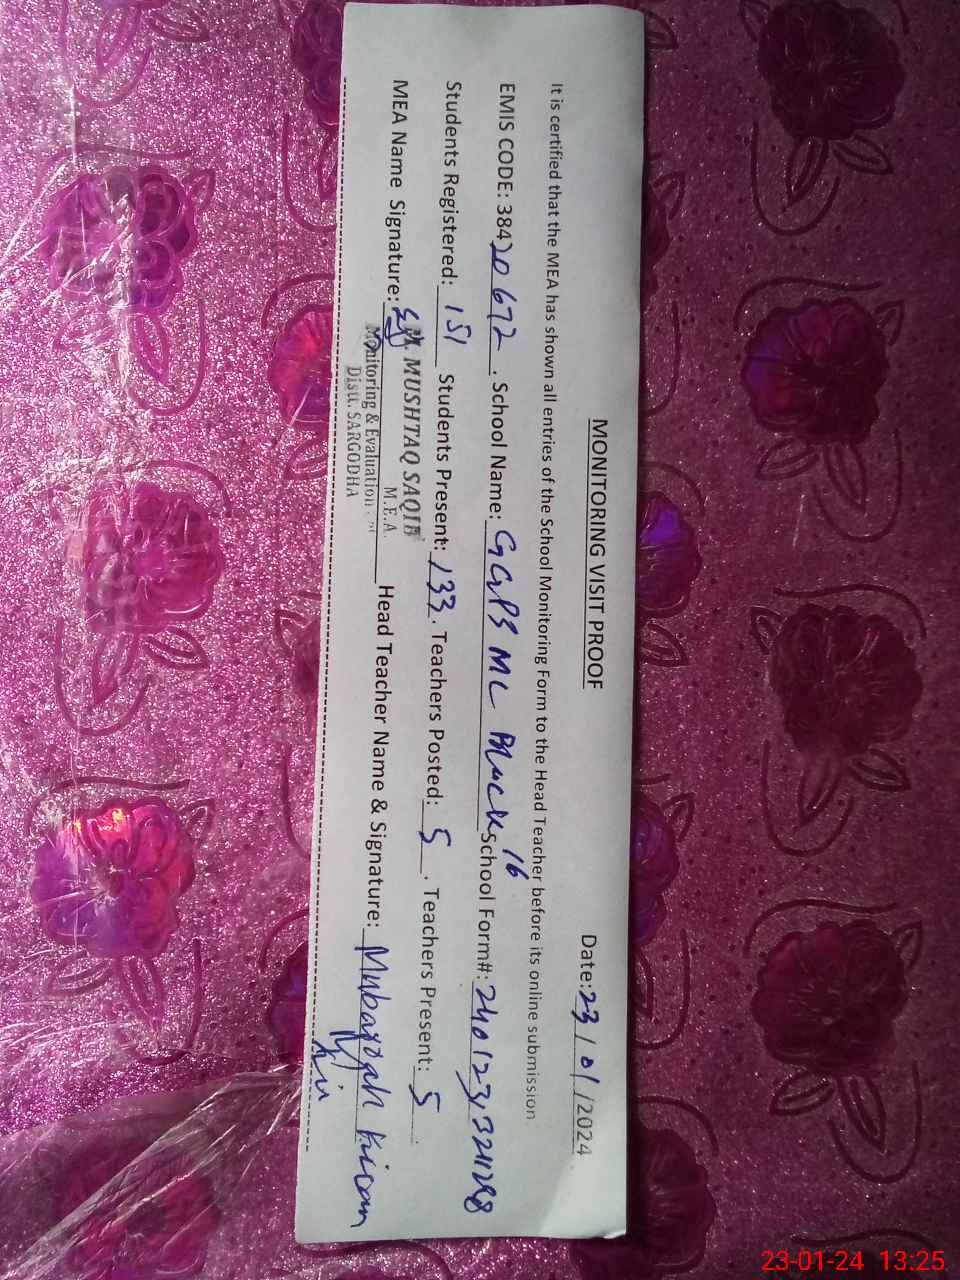 MONITORING VISIT PROOF
Date: 23/01/2024
It is certified that the MEA has shown all entries of the School Monitoring Form to the Head Teacher before its online submission
EMIS CODE: 38420672. School Name: GGPS MC Block 16 School Form#:
Students Registered: 151 Students Present: 133. Teachers Posted: 5. Teachers Present: 5.
MEA Name Signature: M. MUSHTAQ SAQIB Head Teacher Name & Signature: Mubarrah
M.E.A.
Monitoring & Evaluation
Distt. SARGODHA
23-01-24 13:25